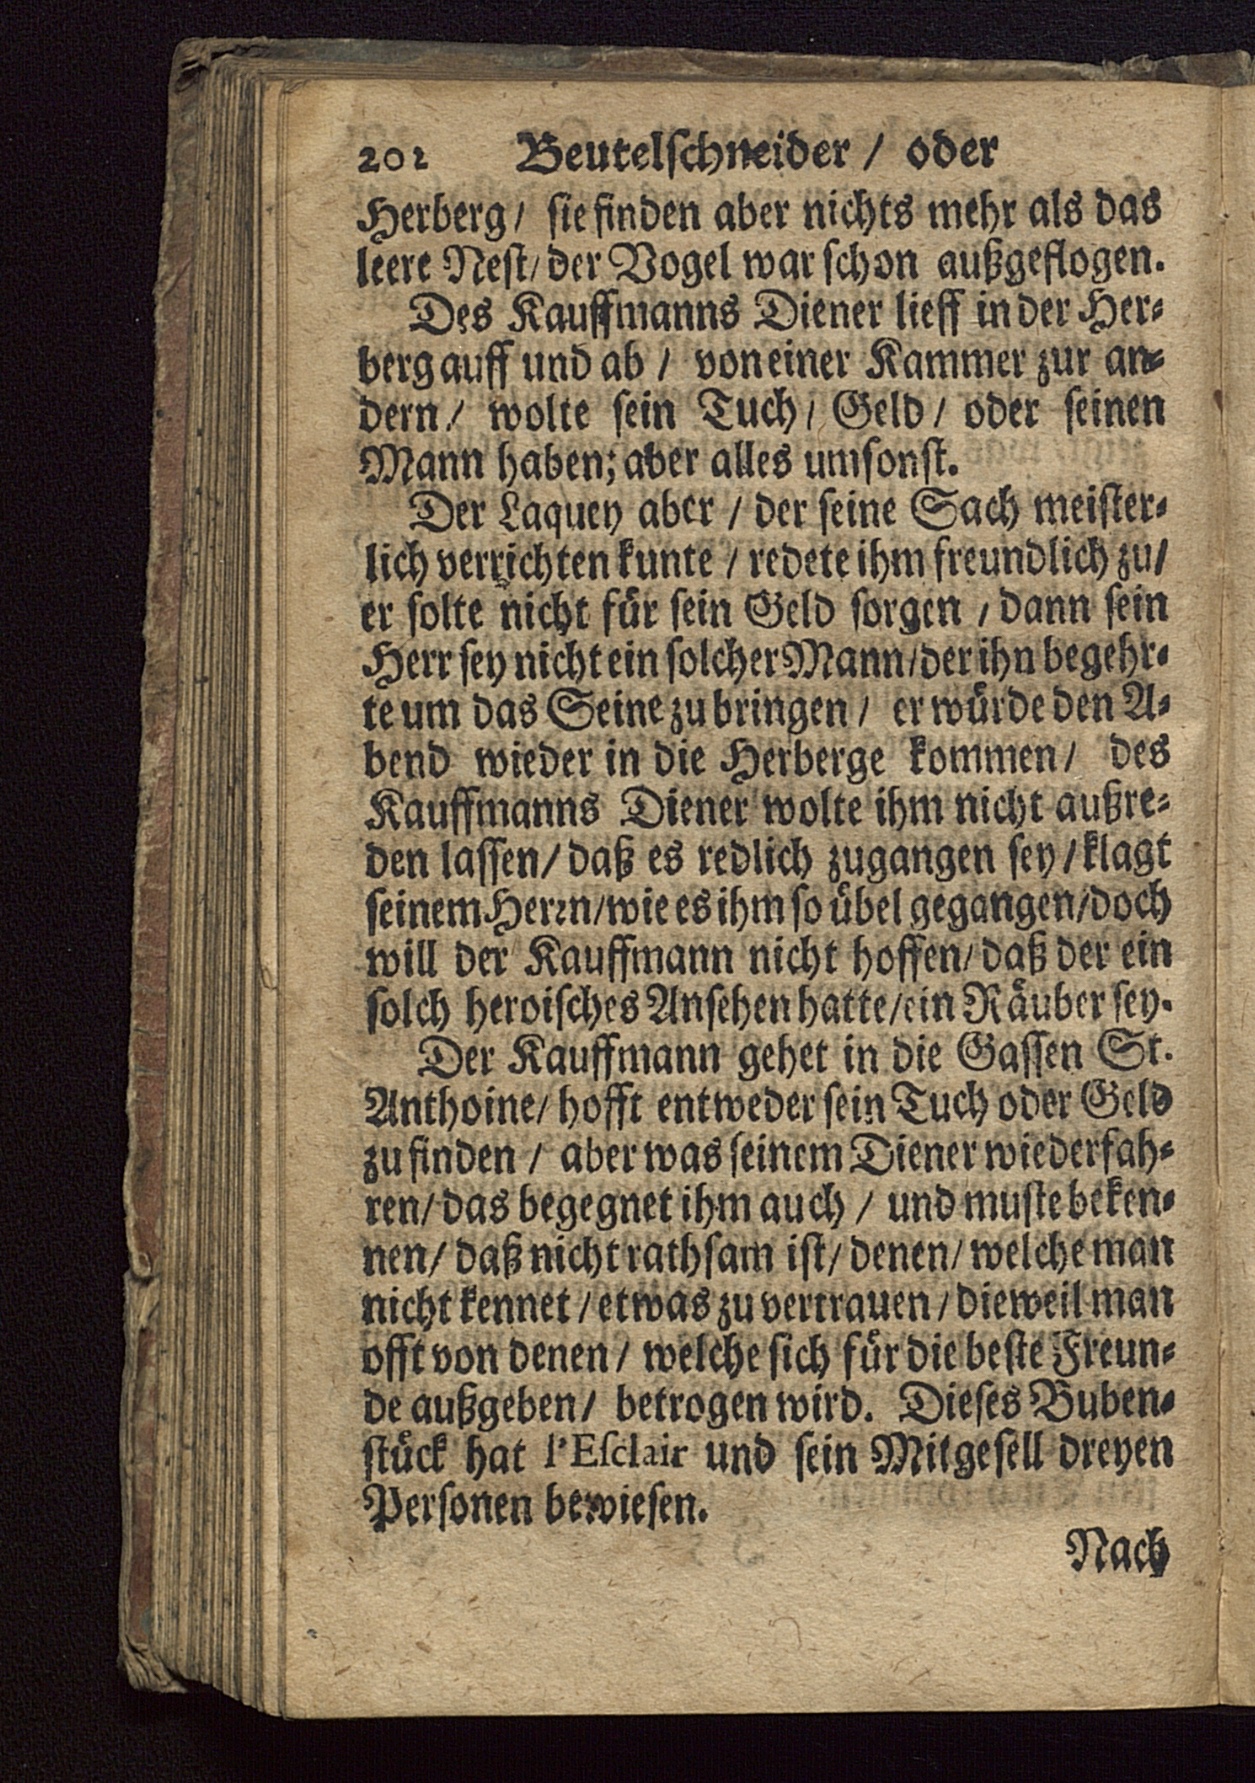 202 Beutelſchneider / oder
Herberg / ſie finden aber nichts mehr als das
leere Neſt / der Vogel war ſchon außgeflogen.
Des Kauffmanns Diener lieff in der Her⸗
berg auff und ab / von einer Kammer zur an⸗
dern / wolte ſein Tuch / Geld / oder ſeinen
Mann haben; aber alles umſonſt.
Der Laquey aber / der ſeine Sach meiſter⸗
lich verrichten kunte / redete ihm freundlich zu /
er ſolte nicht für ſein Geld ſorgen / dann ſein
Herr ſey nicht ein ſolcher Mann / der ihn begehr⸗
te um das Seine zu bringen / er würde den A⸗
bend wieder in die Herberge kommen / des
Kauffmanns Diener wolte ihm nicht außre⸗
den laſſen / daß es redlich zugangen ſey / klagt
ſeinem Herꝛn / wie es ihm ſo übel gegangen / doch
will der Kauffmann nicht hoffen / daß der ein
ſolch heroiſches Anſehen hatte / ein Räuber ſey.
Der Kauffmann gehet in die Gaſſen St.
Anthoine / hofft entweder ſein Tuch oder Geld
zu finden / aber was ſeinem Diener wiederfah⸗
ren / das begegnet ihm auch / und muſte beken⸗
nen / daß nicht rathſam iſt / denen / welche man
nicht kennet / etwas zu vertrauen / dieweil man
offt von denen / welche ſich für die beſte Freun⸗
de außgeben / betrogen wird. Dieſes Buben⸗
ſtück hat l'Eſclair und ſein Mitgeſell dreyen
Perſonen bewieſen.
Nach